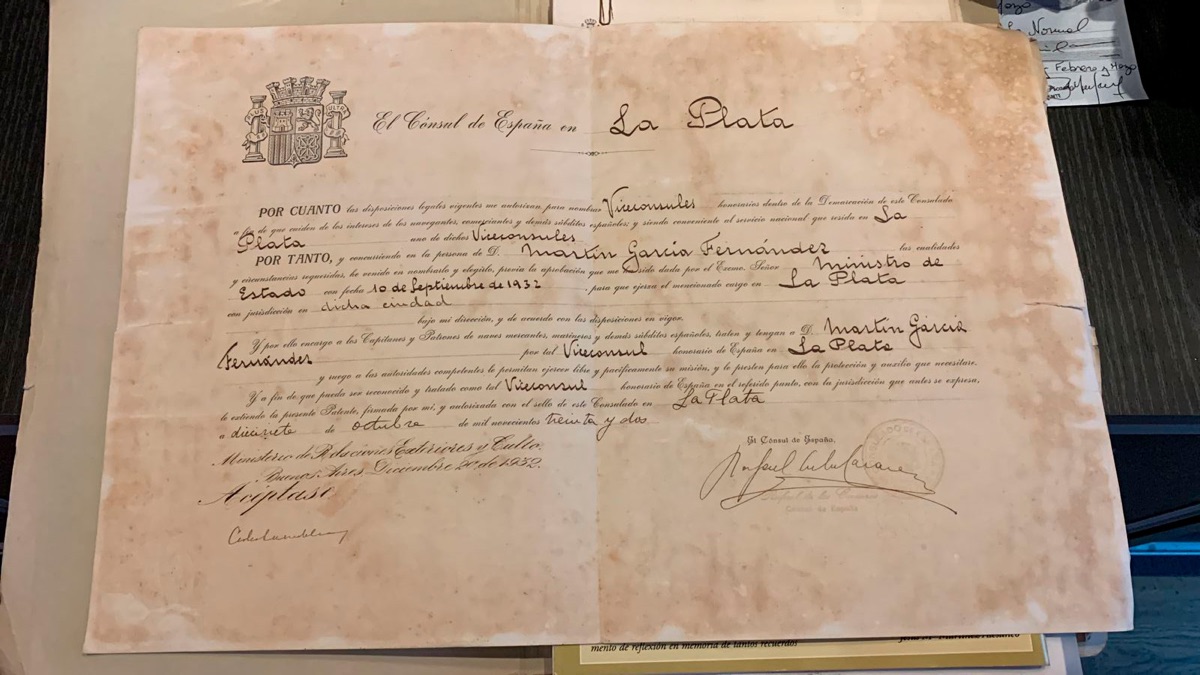 Normal
Febrero y Mayo
PLUS
ULTRA
El Cónsul de España en La Plata
POR CUANTO las disposiciones legales vigentes me autorizan para nombrar Viceconsules honorarios dentro de la Demarcación de este Consulado
a fin de que cuiden de los intereses de los navegantes, comerciantes y demás súbditos españoles; y siendo conveniente al servicio nacional que resida en La
Plata uno de dichos Viceconsules
POR TANTO, y concurriendo en la persona de D. Martín García Fernández las cualidades
y circunstancias requeridas, he venido en nombrarlo y elegirlo, previa la aprobación que me ha sido dada por el Excmo. Señor Ministro de
Estado con fecha 10 de Septiembre de 1932, para que ejerza el mencionado cargo en La Plata
con jurisdicción en dicha ciudad
bajo mi dirección, y de acuerdo con las disposiciones en vigor.
Y por ello encargo a los Capitanes y Patrones de naves mercantes, marineros y demás súbditos españoles, traten y tengan a D. Martín García
Fernández por tal Viceconsul honorario de España en La Plata
y ruego a las autoridades competentes le permitan ejercer libre y pacíficamente su misión, y le presten para ello la protección y auxilio que necesitare.
Y a fin de que pueda ser reconocido y tratado como tal Viceconsul honorario de España en el referido punto, con la jurisdicción que antes se expresa,
le extiendo la presente Patente, firmada por mí, y autorizada con el sello de este Consulado en La Plata
a diecisiete de octubre de mil novecientos treinta y dos
Ministerio de Relaciones Exteriores y Culto.
Buenos Aires Diciembre 20 de 1932.
Acéptase
El Cónsul de España,
Rafael
Cónsul de España
mento de reflexión en memoria de tantos recuerdos